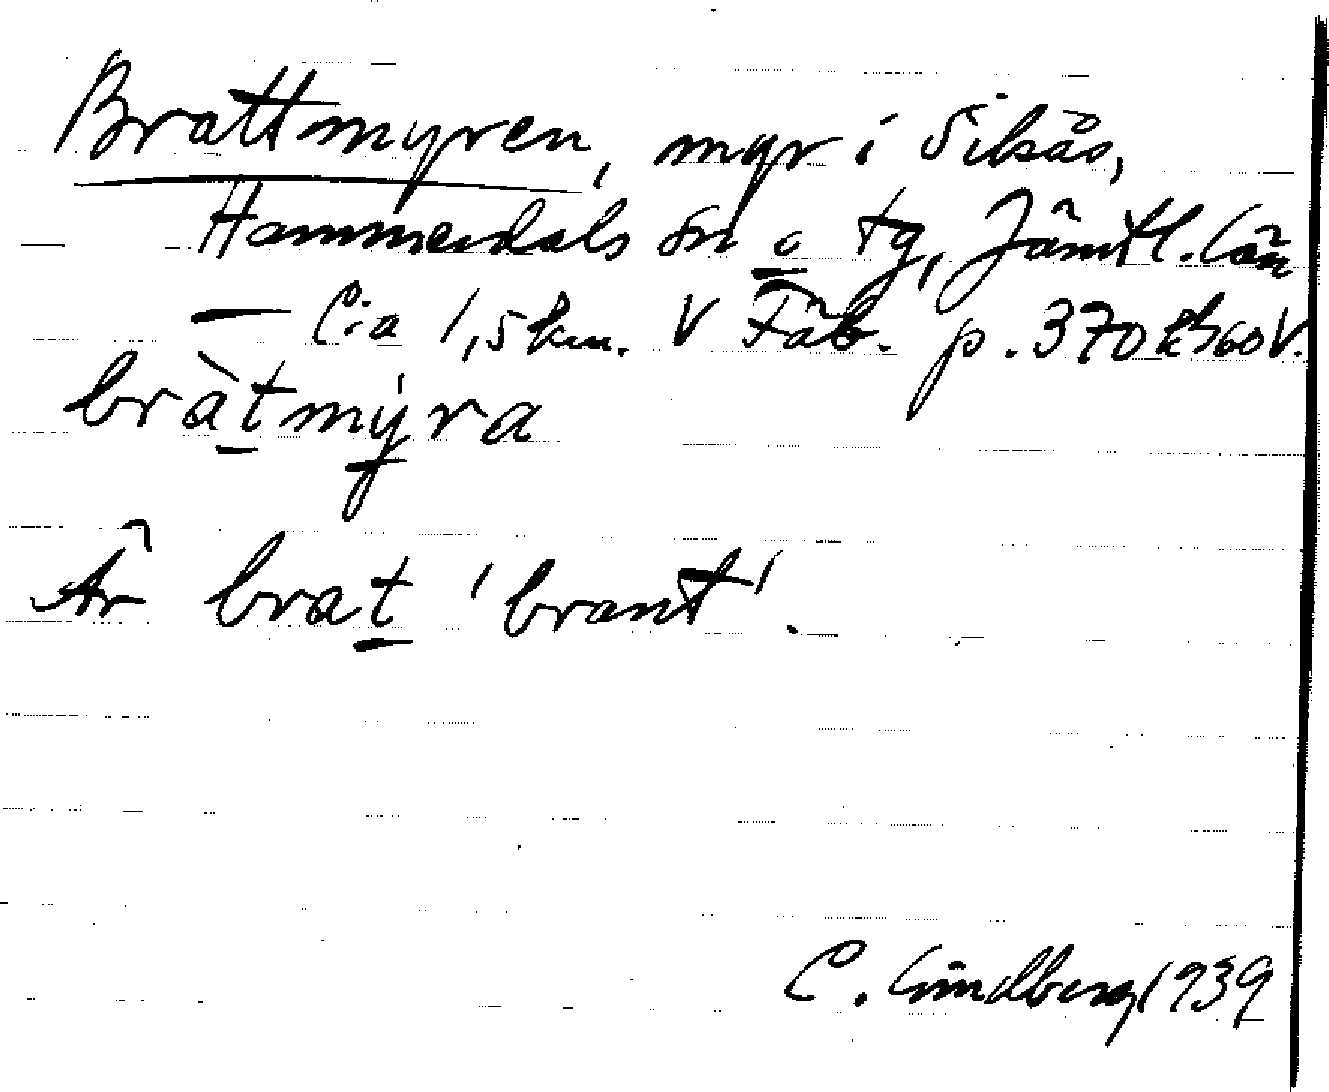 Brattmyren, myr i Sikås,
Hammerdals sn o tg, Jämtl. län
— C:a 1,5 km. V Fäb. p. 370
bràtmýra
Är brat 'brant'.
C. Lindberg 1939